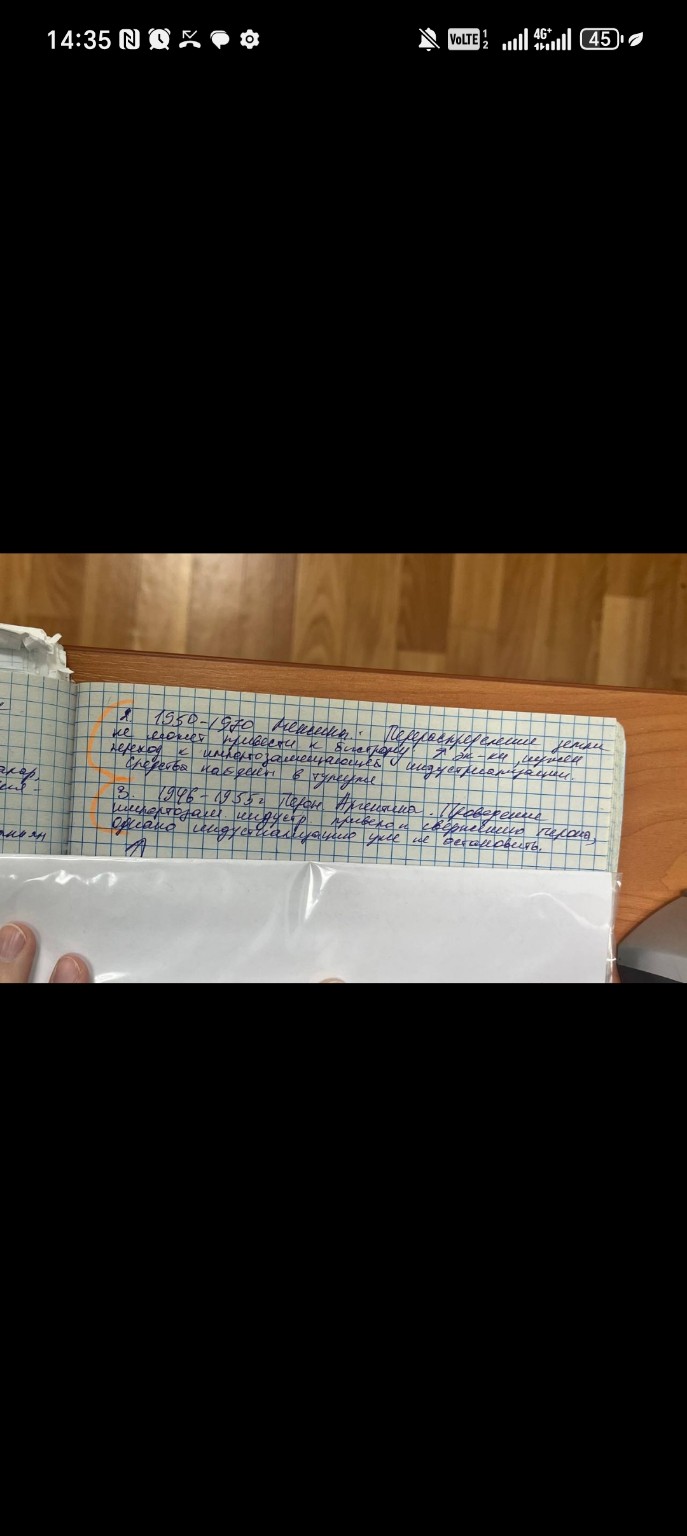 14:35
VoLTE 1 2 4G+ 45
2. 1950-1970 Мексика: Перераспределение земли
не может привести к быстрому ↑ эк-ки, нужен
переход к импортозамещающей индустриализации.
Средства найдены в туризме
3. 1946-1955г Перон Аргентина. Проведение
импортозам. индустр. привело к свержению Перона,
однако индустриализацию уже не остановить.